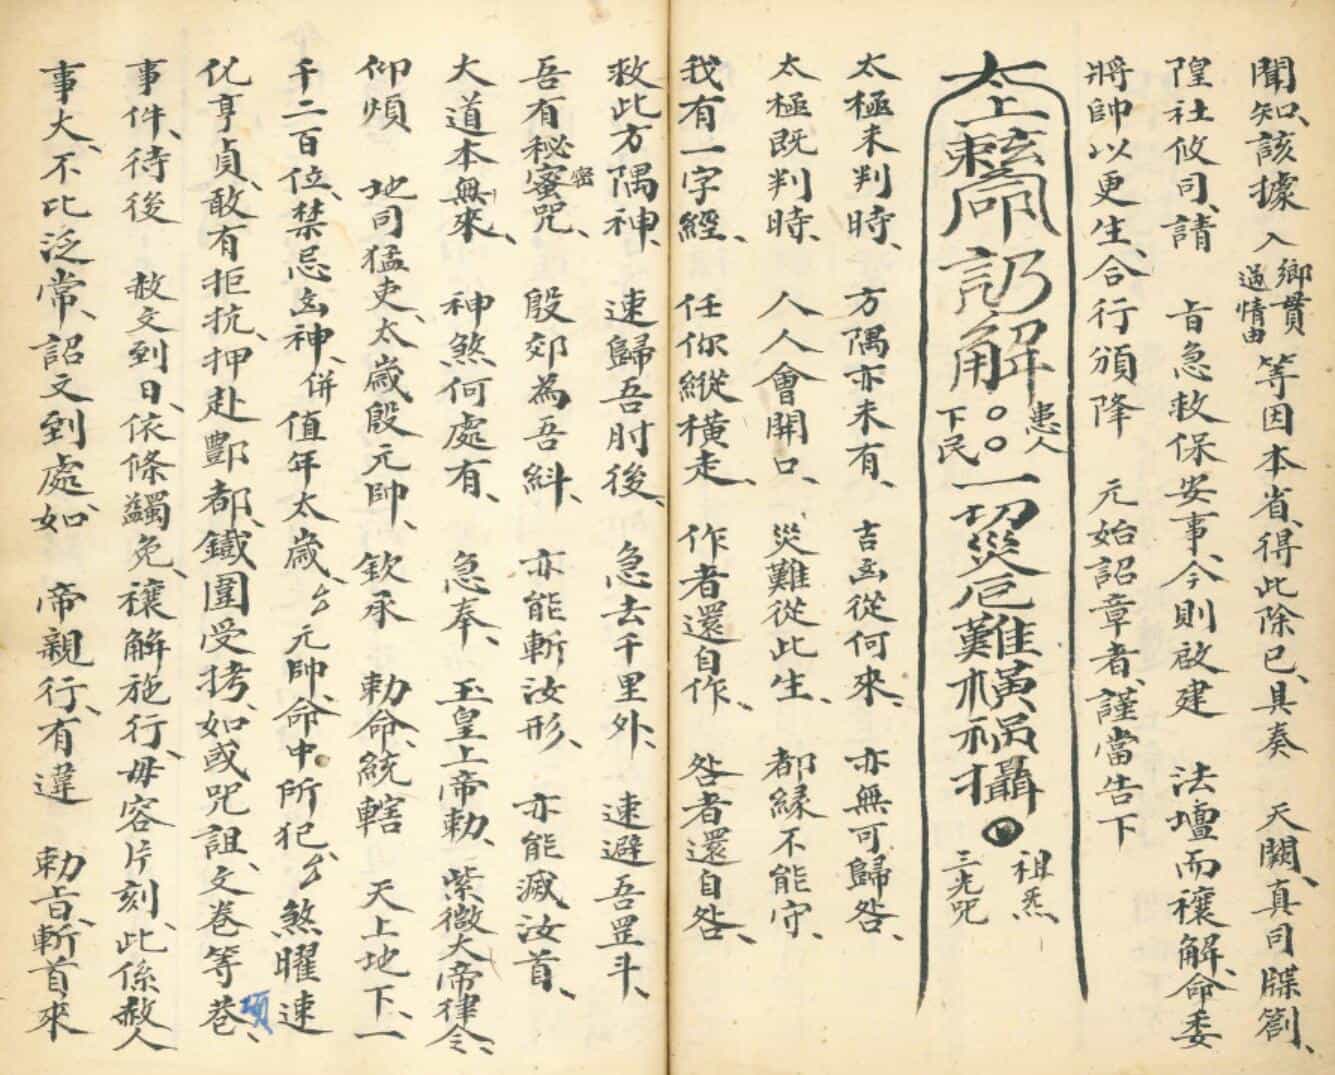 聞知、該據入鄉貫過情由等因本省、得此除已、具奏　天闕、真司牒劄、
隍社攸司、請　旨急救保安事、今則啟建　法壇而禳解、命委
將帥以更生、合行頒降　元始詔章者、謹當告下
太上敕命
解患人下民○○一切災厄難橫禍攝
祖炁、三光咒
太極未判時、方隅亦未有、吉凶從何來、亦無可歸咎、
太極既判時、人人會開口、災難從此生、都緣不能守、
我有一字經、任你縱橫走、作者還自作、咎者還自咎、
救此方隅神、速歸吾肘後、急去千里外、速避吾罡斗、
吾有秘蜜密咒、殷郊為吾糾、亦能斬汝形、亦能滅汝首、
大道本無來、神煞何處有、急奉、玉皇上帝勅、紫微大帝律令、
仰煩　地司猛吏、太歲殷元帥、欽承　勅命、統轄　天上地下、一
千二百位、禁忌凶神、併值年太歲、元帥、命中所犯、煞曜速
化亨貞、敢有拒抗、押赴酆都、鐵圍受拷、如或咒詛、文卷等卷項、
事件、待後　赦文到日、依條蠲免、禳解施行、毋容片刻、此係赦人
事大、不比泛常、詔文到處、如　帝親行、有違　勅旨、斬首來